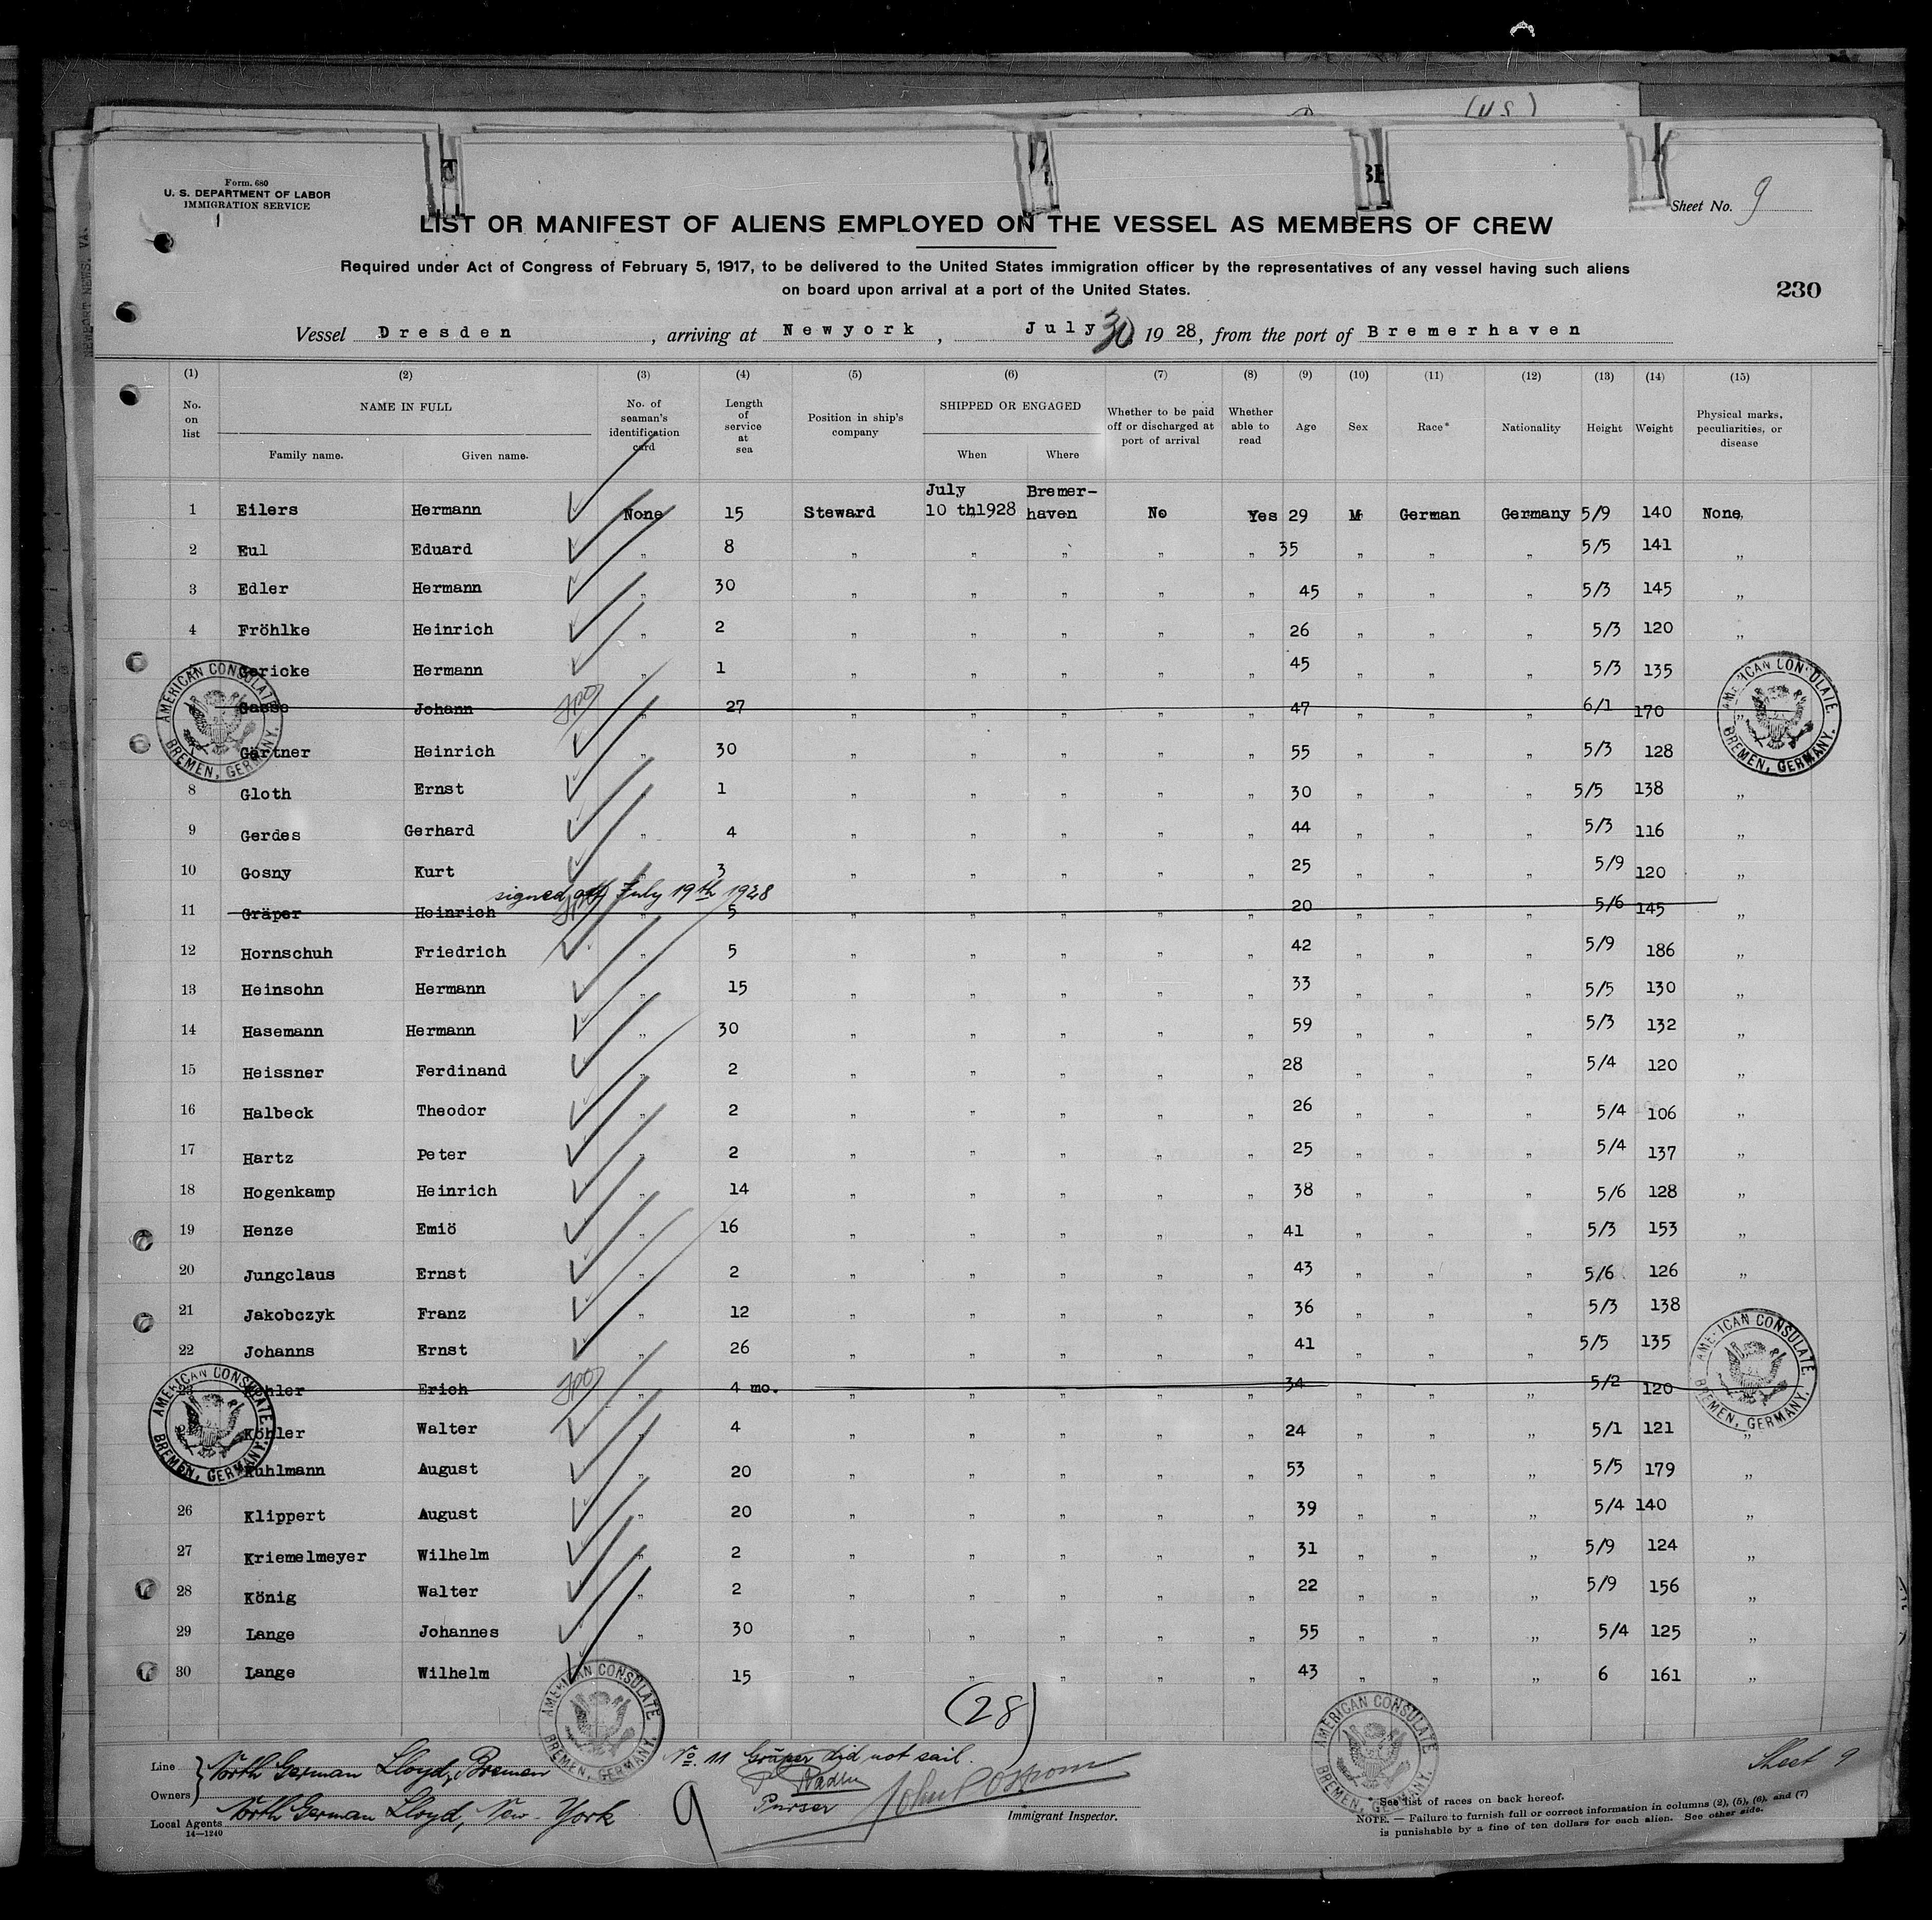 (US)
Form. 680
U. S. DEPARTMENT OF LABOR
IMMIGRATION SERVICE
1
Sheet No. 9
LIST OR MANIFEST OF ALIENS EMPLOYED ON THE VESSEL AS MEMBERS OF CREW
Required under Act of Congress of February 5, 1917, to be delivered to the United States immigration officer by the representatives of any vessel having such aliens
on board upon arrival at a port of the United States.
230
Vessel Dresden, arriving at Newyork, July 30, 1928, from the port of Bremerhaven
(1) (2) (3) (4) (5) (6) (7) (8) (9) (10) (11) (12) (13) (14) (15)
No. on list NAME IN FULL Family name. Given name. No. of seaman's identification card Length of service at sea Position in ship's company SHIPPED OR ENGAGED When Where Whether to be paid off or discharged at port of arrival Whether able to read Age Sex Race* Nationality Height Weight Physical marks, peculiarities, or disease
July Bremer-
1 Eilers Hermann None 15 Steward 10 th1928 haven No Yes 29 M German Germany 5/9 140 None
2 Eul Eduard „ 8 „ „ „ „ „ 35 „ „ „ 5/5 141 „
3 Edler Hermann „ 30 „ „ „ „ „ 45 „ „ „ 5/3 145 „
4 Fröhlke Heinrich „ 2 „ „ „ „ „ 26 „ „ „ 5/3 120 „
Gericke Hermann „ 1 „ „ „ „ „ 45 „ „ „ 5/3 135
Gasse Johann „ 27 „ „ „ „ „ 47 „ „ „ 6/1 170 „
Gärtner Heinrich „ 30 „ „ „ „ „ 55 „ „ „ 5/3 128
8 Gloth Ernst 1 „ „ „ „ „ 30 „ „ „ 5/5 138 „
9 Gerdes Gerhard „ 4 „ „ „ „ „ 44 „ „ „ 5/3 116 „
10 Gosny Kurt „ 3 „ „ „ „ „ 25 „ „ „ 5/9 120 „
signed off July 19th 1928
11 Gräper Heinrich „ 5 „ „ „ „ „ 20 „ „ „ 5/6 145 „
12 Hornschuh Friedrich „ 5 „ „ „ „ „ 42 „ „ „ 5/9 186 „
13 Heinsohn Hermann „ 15 „ „ „ „ „ 33 „ „ „ 5/5 130 „
14 Hasemann Hermann „ 30 „ „ „ „ „ 59 „ „ „ 5/3 132 „
15 Heissner Ferdinand „ 2 „ „ „ „ „ 28 „ „ „ 5/4 120 „
16 Halbeck Theodor „ 2 „ „ „ „ „ 26 „ „ „ 5/4 106 „
17 Hartz Peter „ 2 „ „ „ „ „ 25 „ „ „ 5/4 137 „
18 Hogenkamp Heinrich „ 14 „ „ „ „ „ 38 „ „ „ 5/6 128 „
19 Henze Emiö „ 16 „ „ „ „ „ 41 „ „ „ 5/3 153 „
20 Jungclaus Ernst „ 2 „ „ „ „ „ 43 „ „ „ 5/6 126 „
21 Jakobczyk Franz „ 12 „ „ „ „ „ 36 „ „ „ 5/3 138
22 Johanns Ernst „ 26 „ „ „ „ „ 41 „ „ „ 5/5 135
23 Köhler Erich „ 4 mo. „ „ „ „ „ 34 „ „ „ 5/2 120
Köhler Walter „ 4 „ „ „ „ „ 24 „ „ „ 5/1 121 „
Kuhlmann August „ 20 „ „ „ „ „ 53 „ „ „ 5/5 179 „
26 Klippert August „ 20 „ „ „ „ „ 39 „ „ „ 5/4 140 „
27 Kriemelmeyer Wilhelm „ 2 „ „ „ „ „ 31 „ „ „ 5/9 124 „
28 König Walter „ 2 „ „ „ „ „ 22 „ „ „ 5/9 156 „
29 Lange Johannes „ 30 „ „ „ „ „ 55 „ „ „ 5/4 125 „
30 Lange Wilhelm 15 „ „ „ „ „ 43 „ „ „ 6 161 „
AMERICAN CONSULATE. BREMEN, GERMANY.
AMERICAN CONSULATE. BREMEN, GERMANY.
AMERICAN CONSULATE. BREMEN, GERMANY.
AMERICAN CONSULATE. BREMEN, GERMANY.
AMERICAN CONSULATE. BREMEN, GERMANY.
AMERICAN CONSULATE. BREMEN, GERMANY.
(28)
Line North German Lloyd, Bremen
Owners
Local Agents North German Lloyd, New-York
14—1240
No. 11 Gräper did not sail.
Purser
9
Immigrant Inspector.
Sheet 9
*See list of races on back hereof.
NOTE. — Failure to furnish full or correct information in columns (2), (5), (6), and (7)
is punishable by a fine of ten dollars for each alien. See other side.
NEWPORT NEWS, VA.